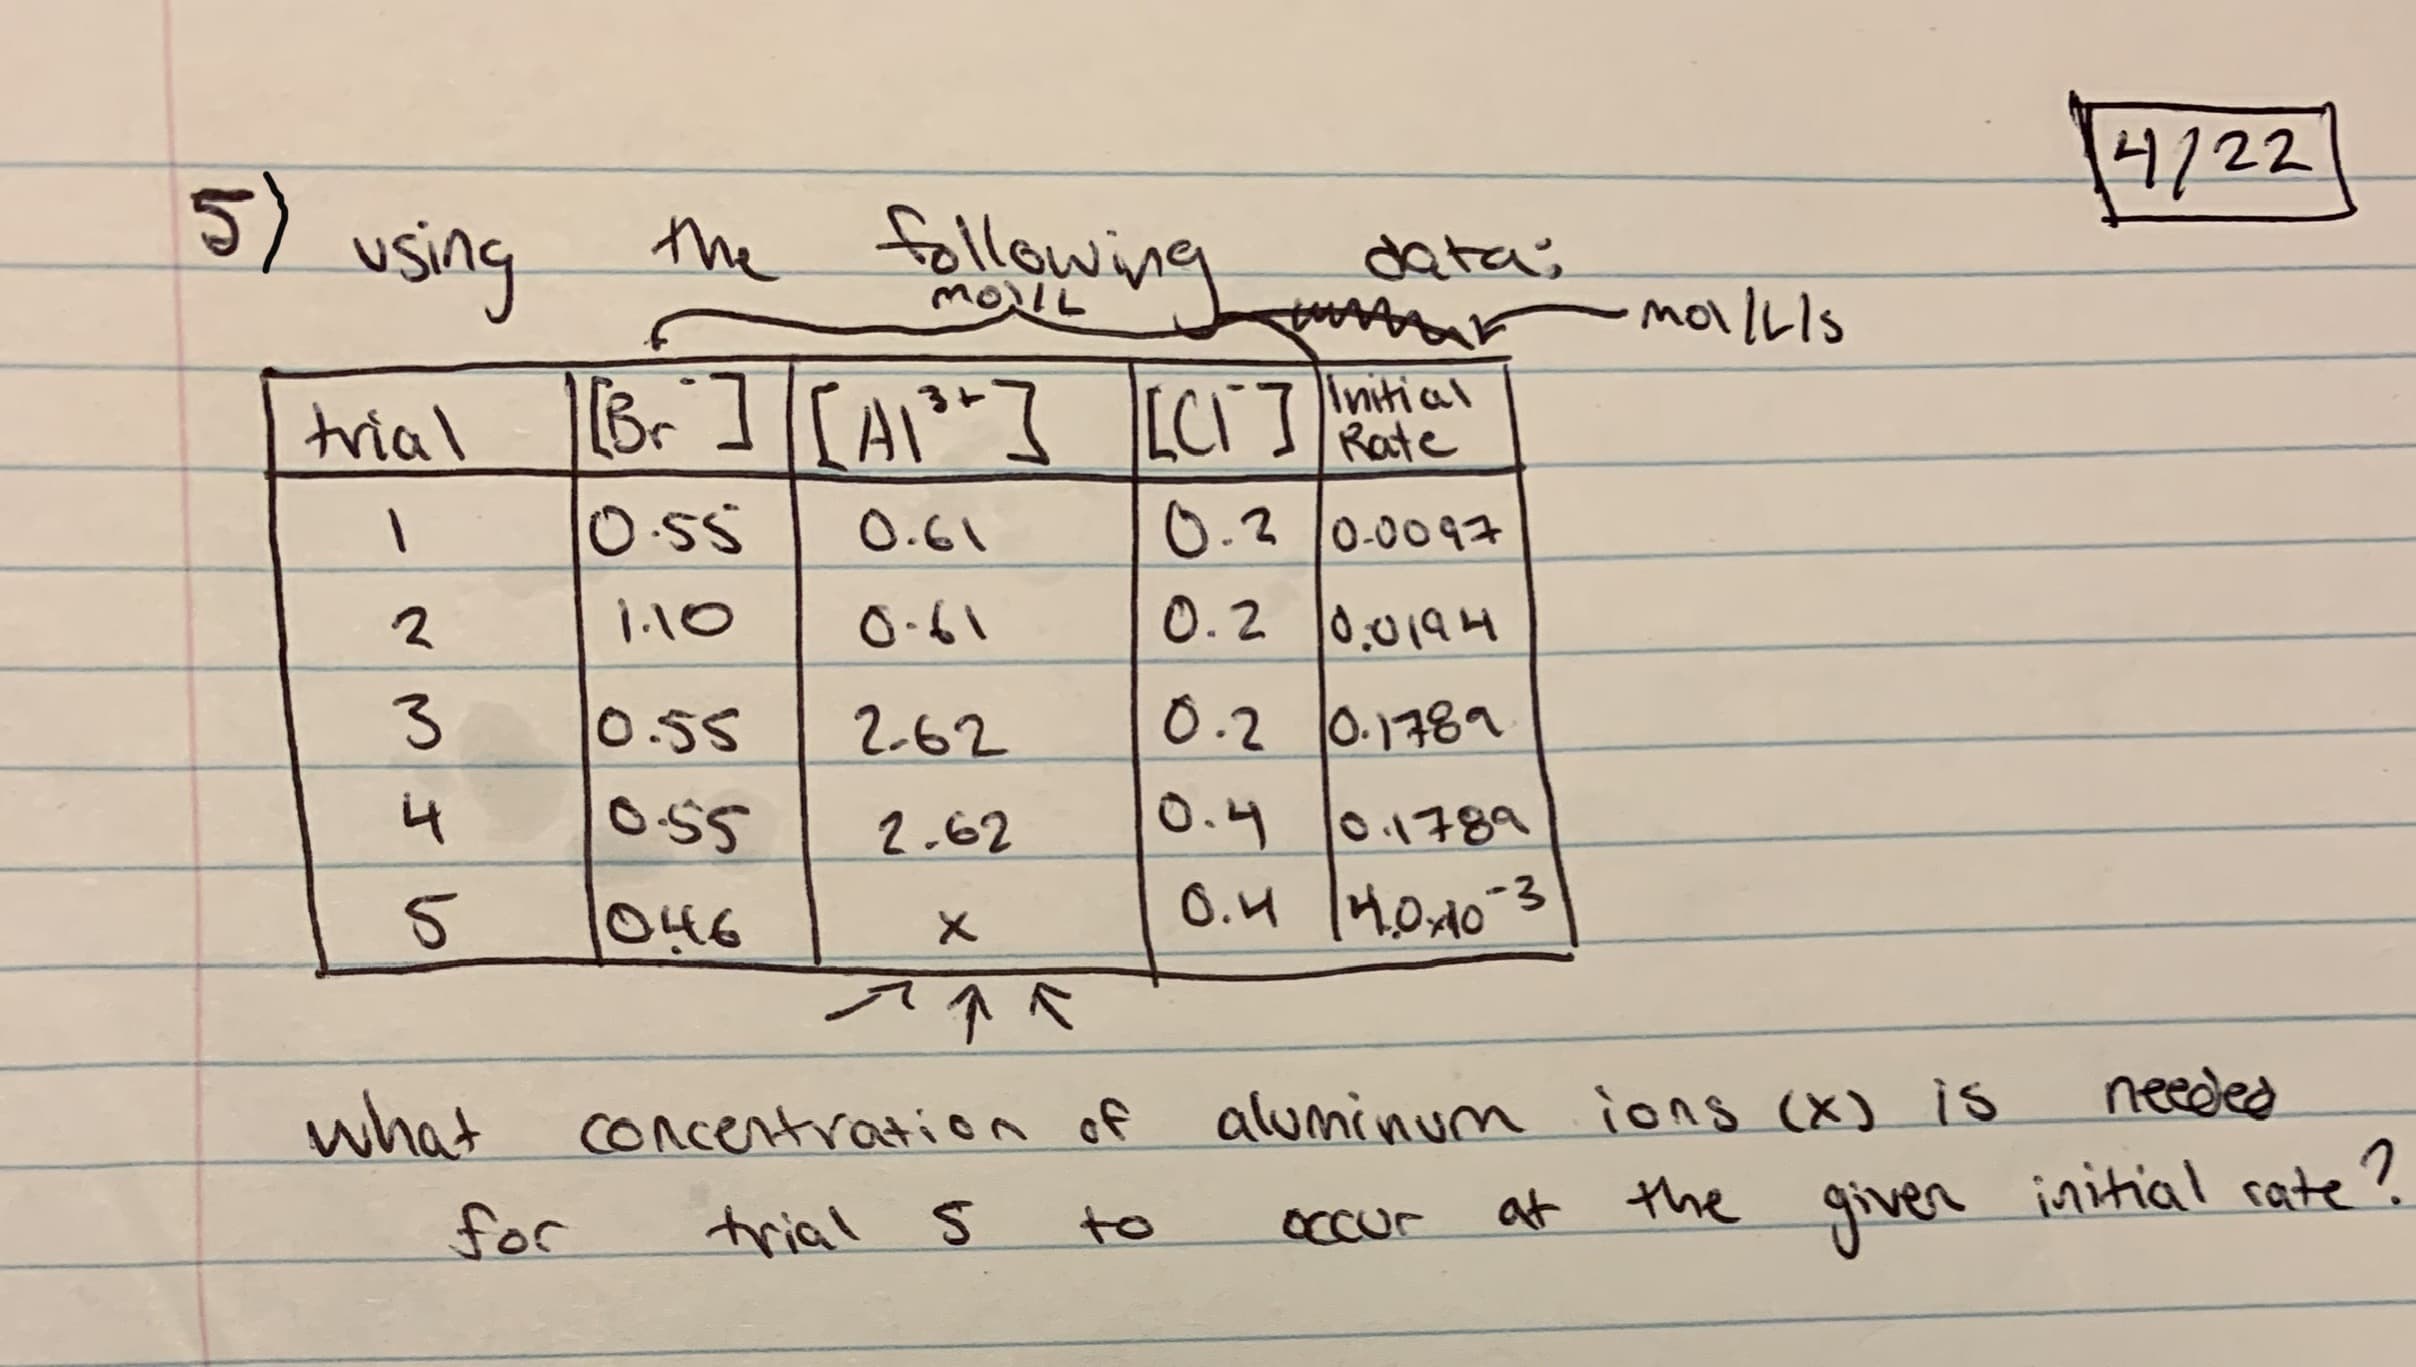 4/22
5) using the following data:
mol/L mol/L/s
trial [Br⁻] [Al³⁺] [Cl⁻] Initial Rate
1 0.55 0.61 0.2 0.0097
2 1.10 0.61 0.2 0.0194
3 0.55 2.62 0.2 0.1789
4 0.55 2.62 0.4 0.1789
5 0.46 x 0.4 4.0x10⁻³
what concentration of aluminum ions (x) is needed
for trial 5 to occur at the given initial rate?